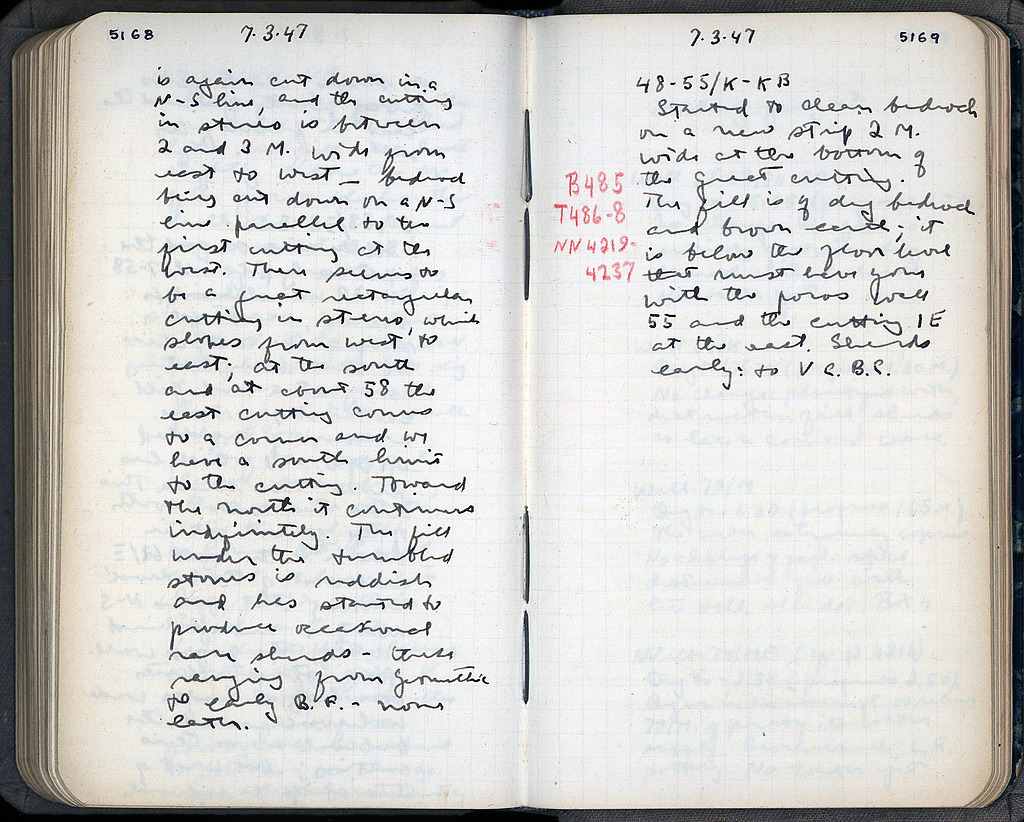 5168
7.3.47
is again cut down in a
N-S line, and the cutting
in stereo is between
2 and 3 M. wide from
east to west – bedrock
being cut down on a N-S
line parallel to the
first cutting at the
west. There seems to
be a great rectangular
cutting in stereo, which
slopes from west to
east; at the south
and at about 58 the
east cutting comes
to a corner and we
have a south limit
to the cutting. Toward
the north it continues
indefinitely. The fill
under the tumbled
stones is reddish
and has started to
produce occasional
rare sherds – these
ranging from Geometric
to early B.F. – none
later.
7.3.47
5169
48-55/K-KB
Started to clean bedrock
on a new strip 2 M.
wide at the bottom of
the great cutting.
The fill is of dug bedrock
and brown earth; it
is below the floor level
that must have gone
with the poros wall
55 and the cutting 1E
at the east. Sherds
early: to V C. B.C.
B485
T486-8
NN4219-
4237